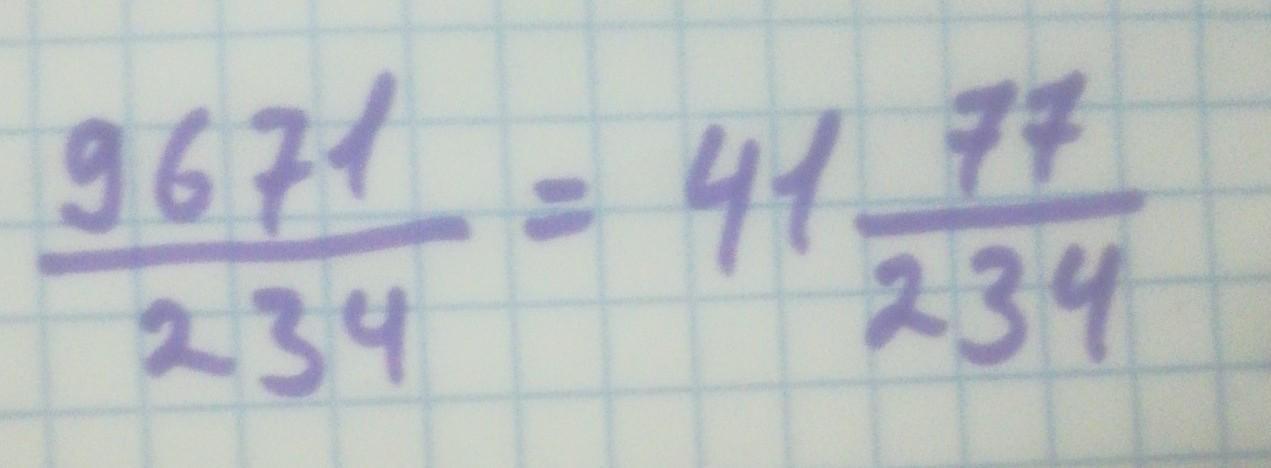 9671/234 = 41 77/234